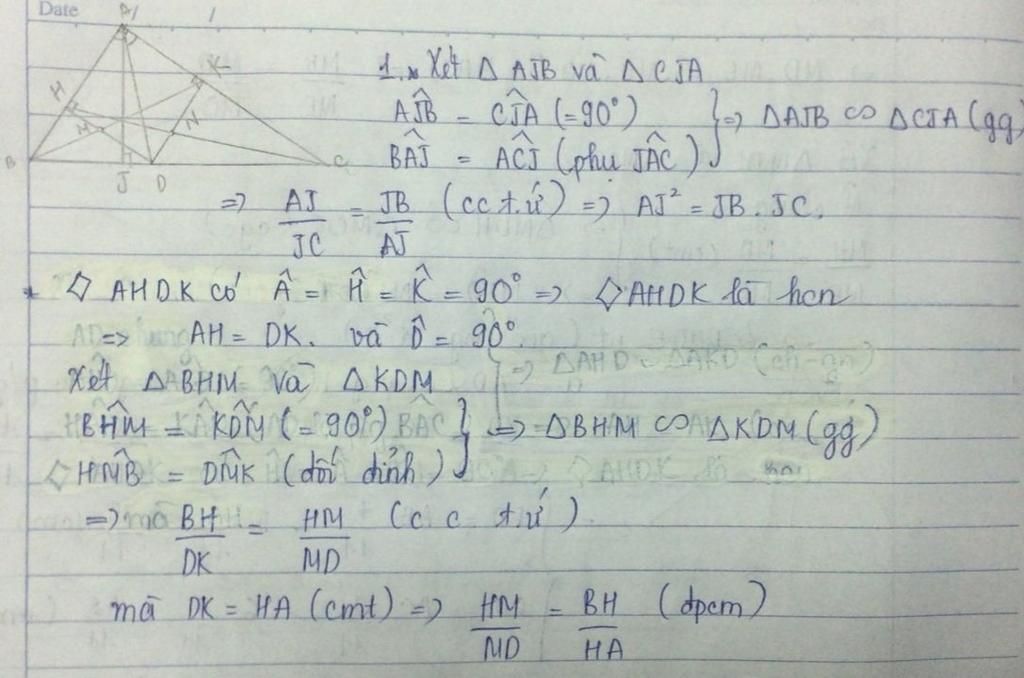 Date
A
H
K
M
N
B
J
D
C
1. * Xét Δ AJB và Δ CJA
AĴB = CĴA (= 90°)
BÂJ = AĈJ (phụ JÂC)
} => ΔAJB ∽ ΔCJA (gg)
=> AJ/JC = JB/AJ (cc t.ứ) => AJ² = JB . JC.
* ◇ AHDK có Â = Ĥ = K̂ = 90° => ◇AHDK là hcn
=> AH = DK. và D̂ = 90°
Xét ΔBHM và ΔKDM
BĤM = KD̂M (= 90°)
HM̂B = DM̂K (đối đỉnh)
} => ΔBHM ∽ ΔKDM (gg)
=> BH/DK = HM/MD (c c t.ứ).
mà DK = HA (cmt) => HM/MD = BH/HA (đpcm)